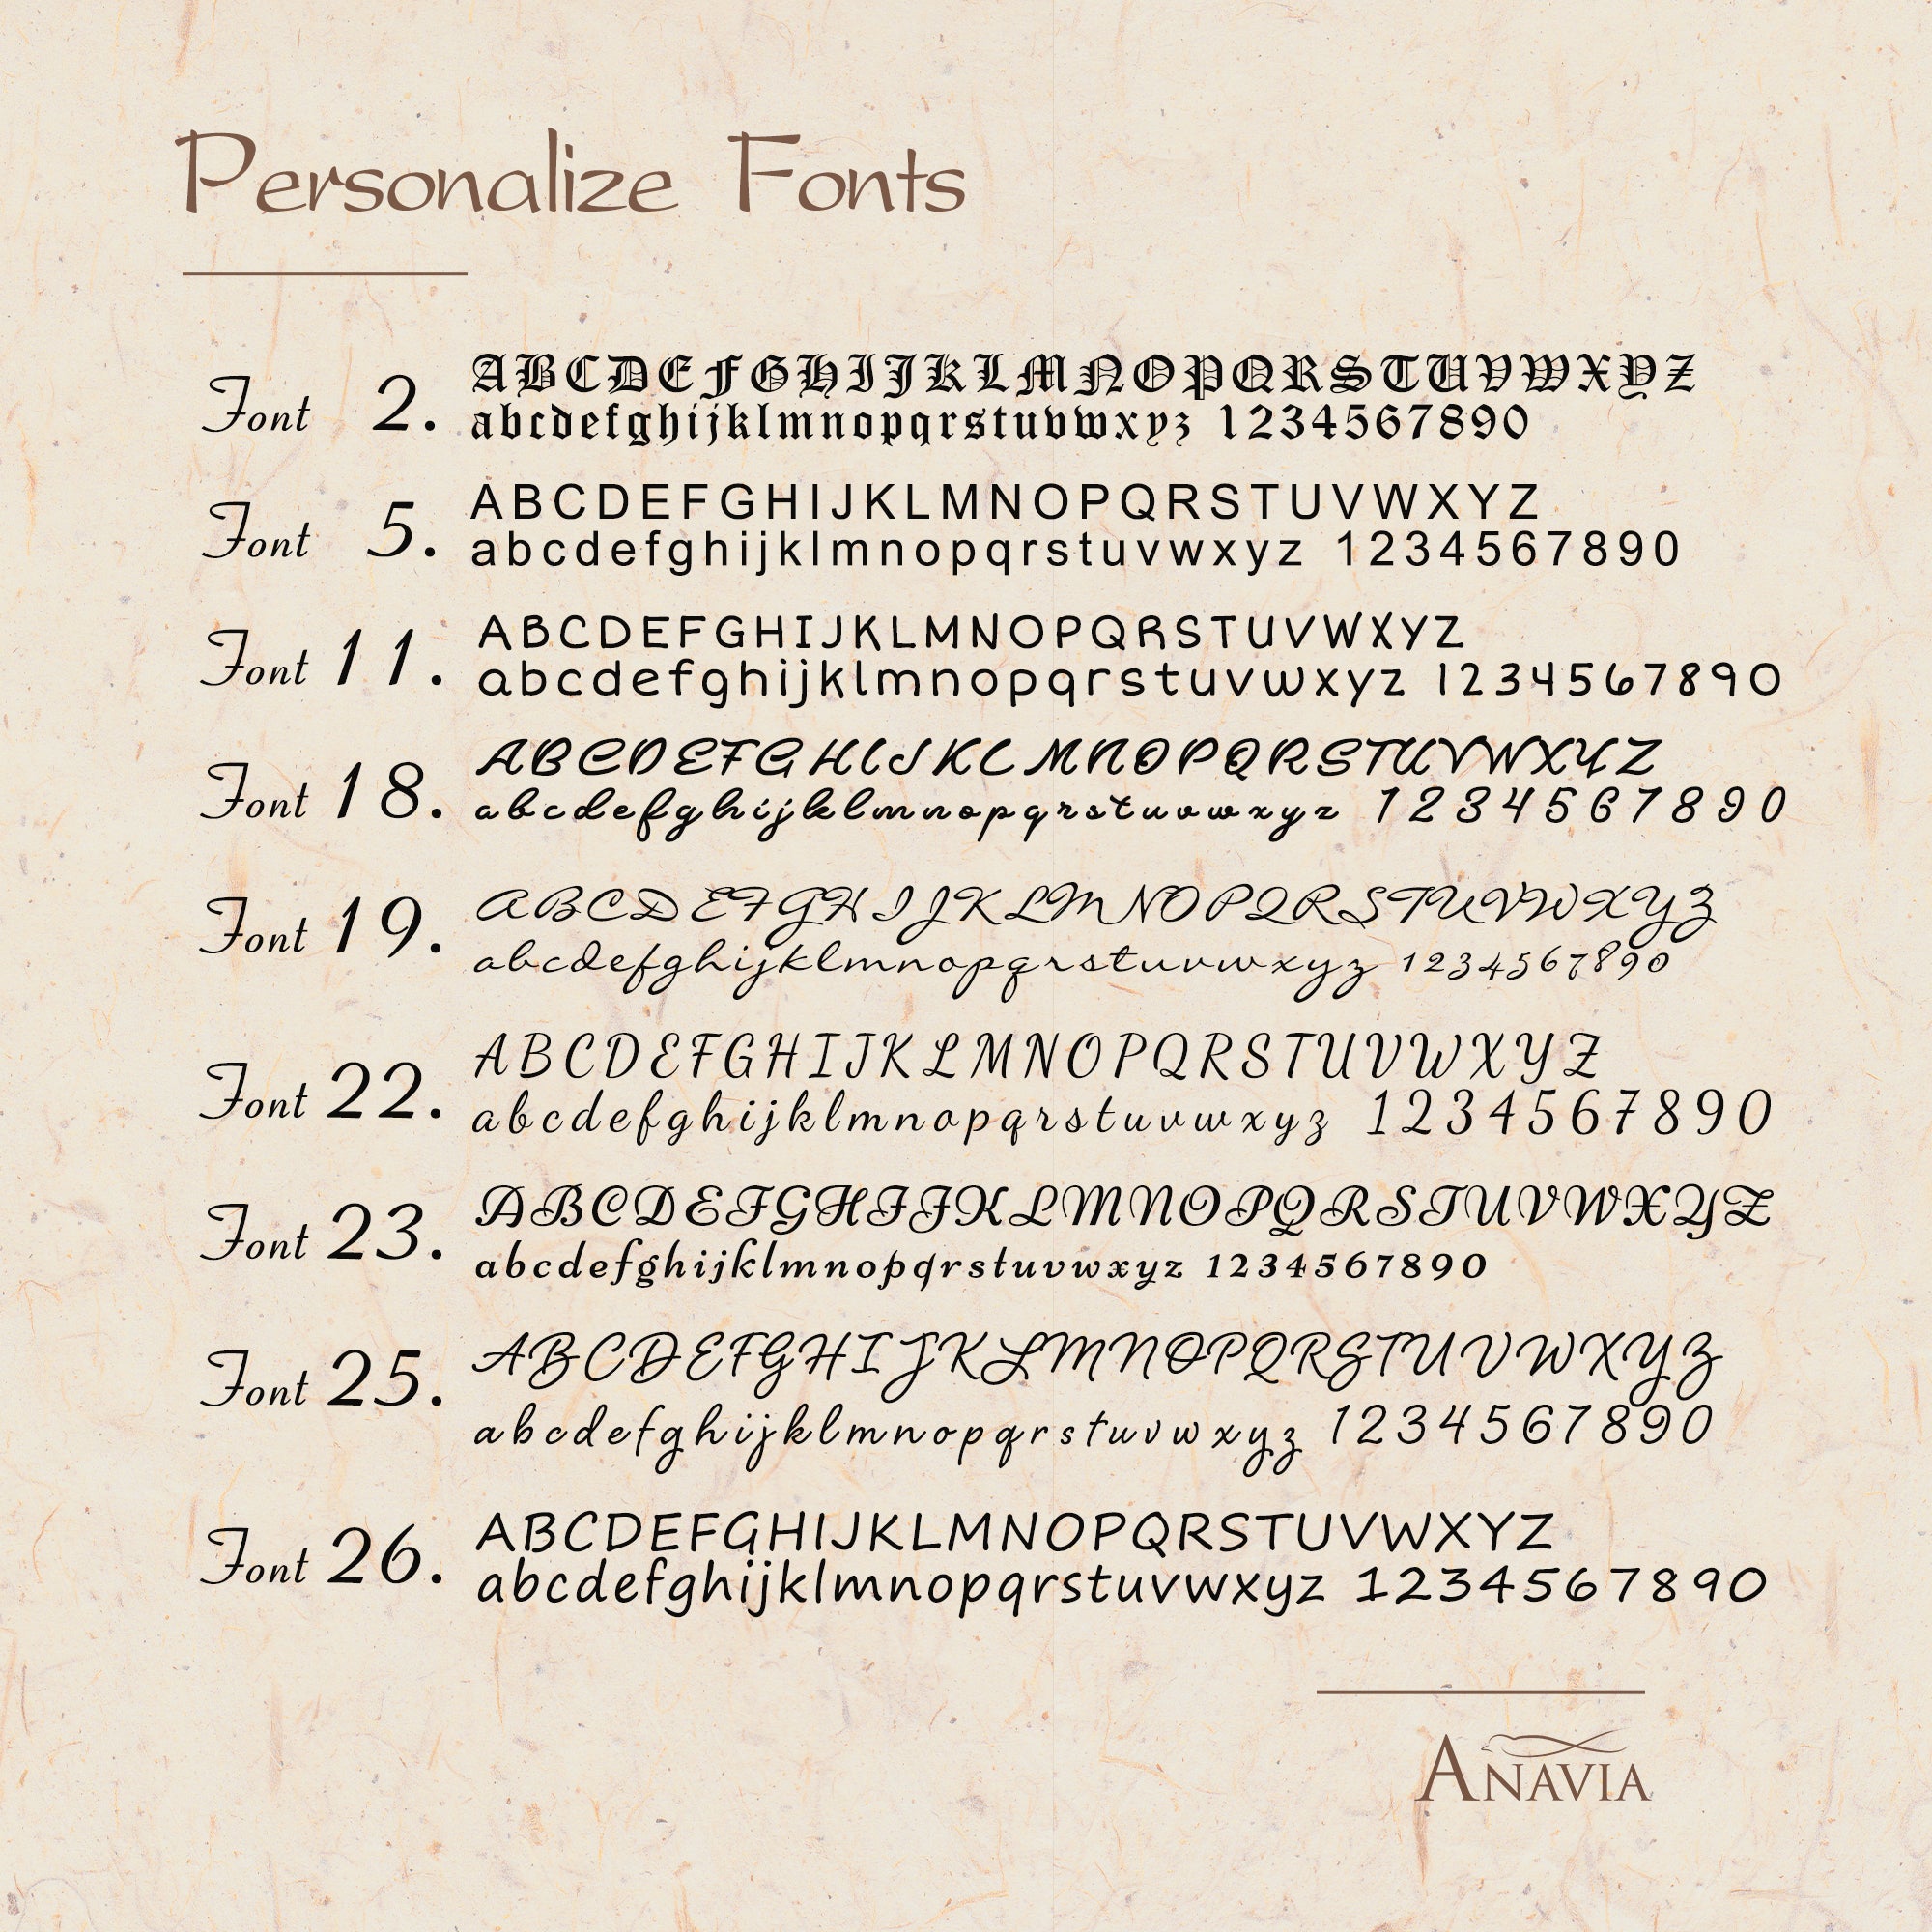 Personalize Fonts
Font 2. ABCDEFGHIJKLMNOPQRSTUVWXYZ
abcdefghijklmnopqrstuvwxyz 1234567890
Font 5. ABCDEFGHIJKLMNOPQRSTUVWXYZ
abcdefghijklmnopqrstuvwxyz 1234567890
Font 11. ABCDEFGHIJKLMNOPQRSTUVWXYZ
abcdefghijklmnopqrstuvwxyz 1234567890
Font 18. ABCDEFGHIJKLMNOPQRSTUVWXYZ
abcdefghijklmnopqrstuvwxyz 1234567890
Font 19. ABCDEFGHIJKLMNOPQRSTUVWXYZ
abcdefghijklmnopqrstuvwxyz 1234567890
Font 22. ABCDEFGHIJKLMNOPQRSTUVWXYZ
abcdefghijklmnopqrstuvwxyz 1234567890
Font 23. ABCDEFGHIJKLMNOPQRSTUVWXYZ
abcdefghijklmnopqrstuvwxyz 1234567890
Font 25. ABCDEFGHIJKLMNOPQRSTUVWXYZ
abcdefghijklmnopqrstuvwxyz 1234567890
Font 26. ABCDEFGHIJKLMNOPQRSTUVWXYZ
abcdefghijklmnopqrstuvwxyz 1234567890
ANAVIA